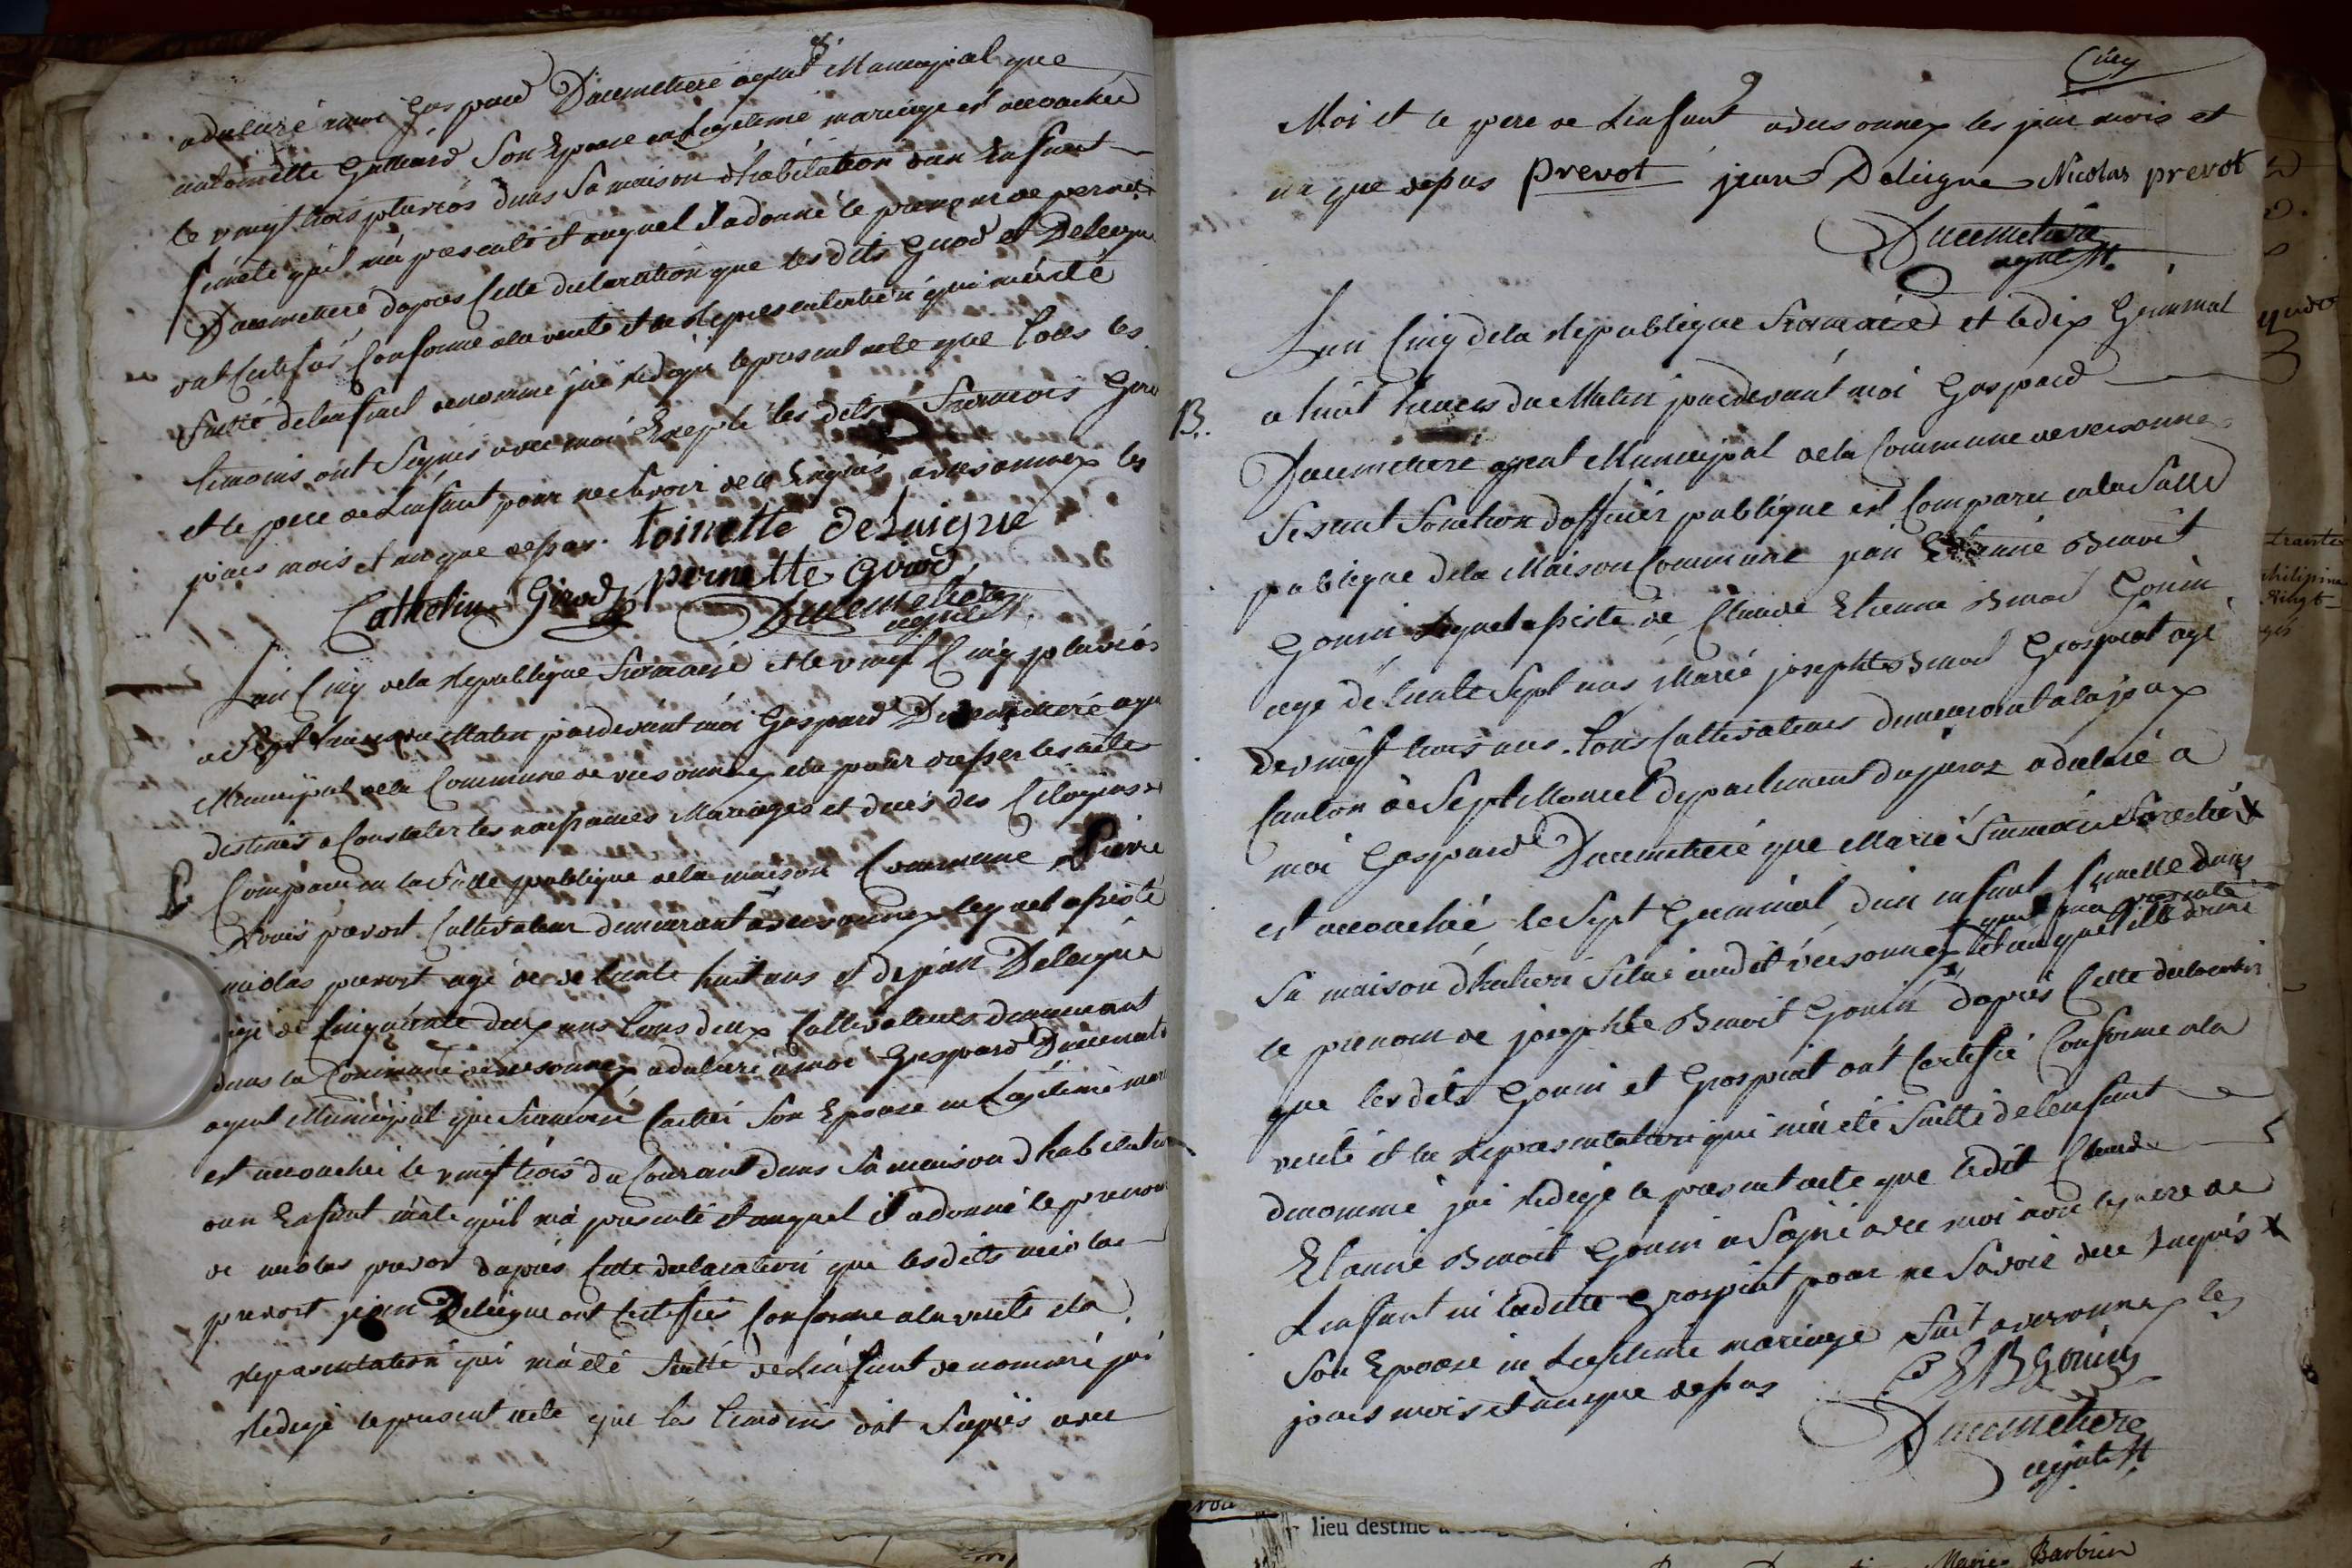 8
a declaré a moi Gaspard Ducimetiere agent Municipal que
antoinette Gallard Son Epouse en Legitime mariage est accouchée
le vingt trois pluvios dans Sa maison d'habitation d'un Enfant
fimele quil m'a presenté et auquel il a donné le prenom de pernet
Ducimetiere dapres Cette declaration que les dits Girod et Deleigne
ont Certifiés Conforme a la verité et la Representation qui m'a eté
faitte de lenfant denommé j'ai Redigé le present acte que tous les
temoins ont Signés avec moi Excepté les dits Francois Giro
et le pere de Lenfant pour ne Savoir de ce Enquis a versonnex les
jours mois et an que dessus. toinette deLaigue
Catheline Girod pernette girod
Ducimetiere
agent M.
L'an Cinq de la Republique Francaise et le vingt Cinq pluvios
a Sept heures du Matin pardevant moi Gaspard Ducimetiere age
Municipal de la Commune de versonnex elu pour dresser les actes
destinés a Constater les naissances Mariages et deces des Citoyens est
Comparu en la Salle publique de la maison Commune Pierre
Louis prevost Cultivateur demeurant a versonnex lequel assisté
nicolas prevost agé de trente huit ans et de jean Deleigne
agé de Cinquante deux ans tous deux Cultivateurs demeurant
dans la Commune de versonnex a declaré a moi Gaspard Ducimeti
agent Municipal que Francoise Cartier Son Epouse en Legitime mar
est accouchée le vingt trois du Courant dans Sa maison d'habitation
d'un Enfant mâle quil m'a presenté et auquel il a donné le prenom
de nicolas prevost dapres Cette declaration que les dits nicolas
prevost jean Deleigne ont Certifiés Conforme a la verité et la
Representation qui m'a eté faitte de Lenfant denommé jai
Redigé le present acte que les temoins ont Signés avec
Cinq
9
Moi et le pere de Lenfant a versonnex les jour mois et
an que dessus prevot jean Deleigne Nicolas prevot
Ducimetiere
agent M.
L'an Cinq de la Republique Francaise et le dix Germinal
B. a huit heures du Matin pardevant moi Gaspard
Ducimetiere agent Municipal de la Commune de versonnex
fesant fonction dofficier publique est Comparu en la Salle
publique de la Maison Commune jean Etienne Benoit
Gonin Lequel assisté de Claude Etienne Benoit Gonin
agé de trente Sept ans Marie josephte Benoit Grospirat agé
de vingt trois ans. tous Cultivateurs demeurant a lajoux
Canton de Sept Moncel departement du juraz a declaré a
moi Gaspard Ducimetiere que Marie
est accouchée le Sept Germinal d'un enfant fimelle dans
quil m'a presenté
Sa maison d'habion Situé audit versonnex et auquel il a donné
le prenom de josephte Benoit Gonin dapres Cette declaration
que les dits Gonin et Grospirat ont Certifié Conforme a la
verité et la Representation qui m'a eté faitte de lenfant
denommé jai Redigé le present acte que ledit Claude
Etienne Benoit Gonin a Signé avec moi non le pere de
Lenfant ni laditte Grospirat pour ne Savoir dece Enquis X
Son Epouse en Legitime mariage fait a versonnex les
jours mois et an que dessus C E B Gonin
Ducimetiere
agent M.
trante
philipine
vingt
lieu destiné
Marie Barbier